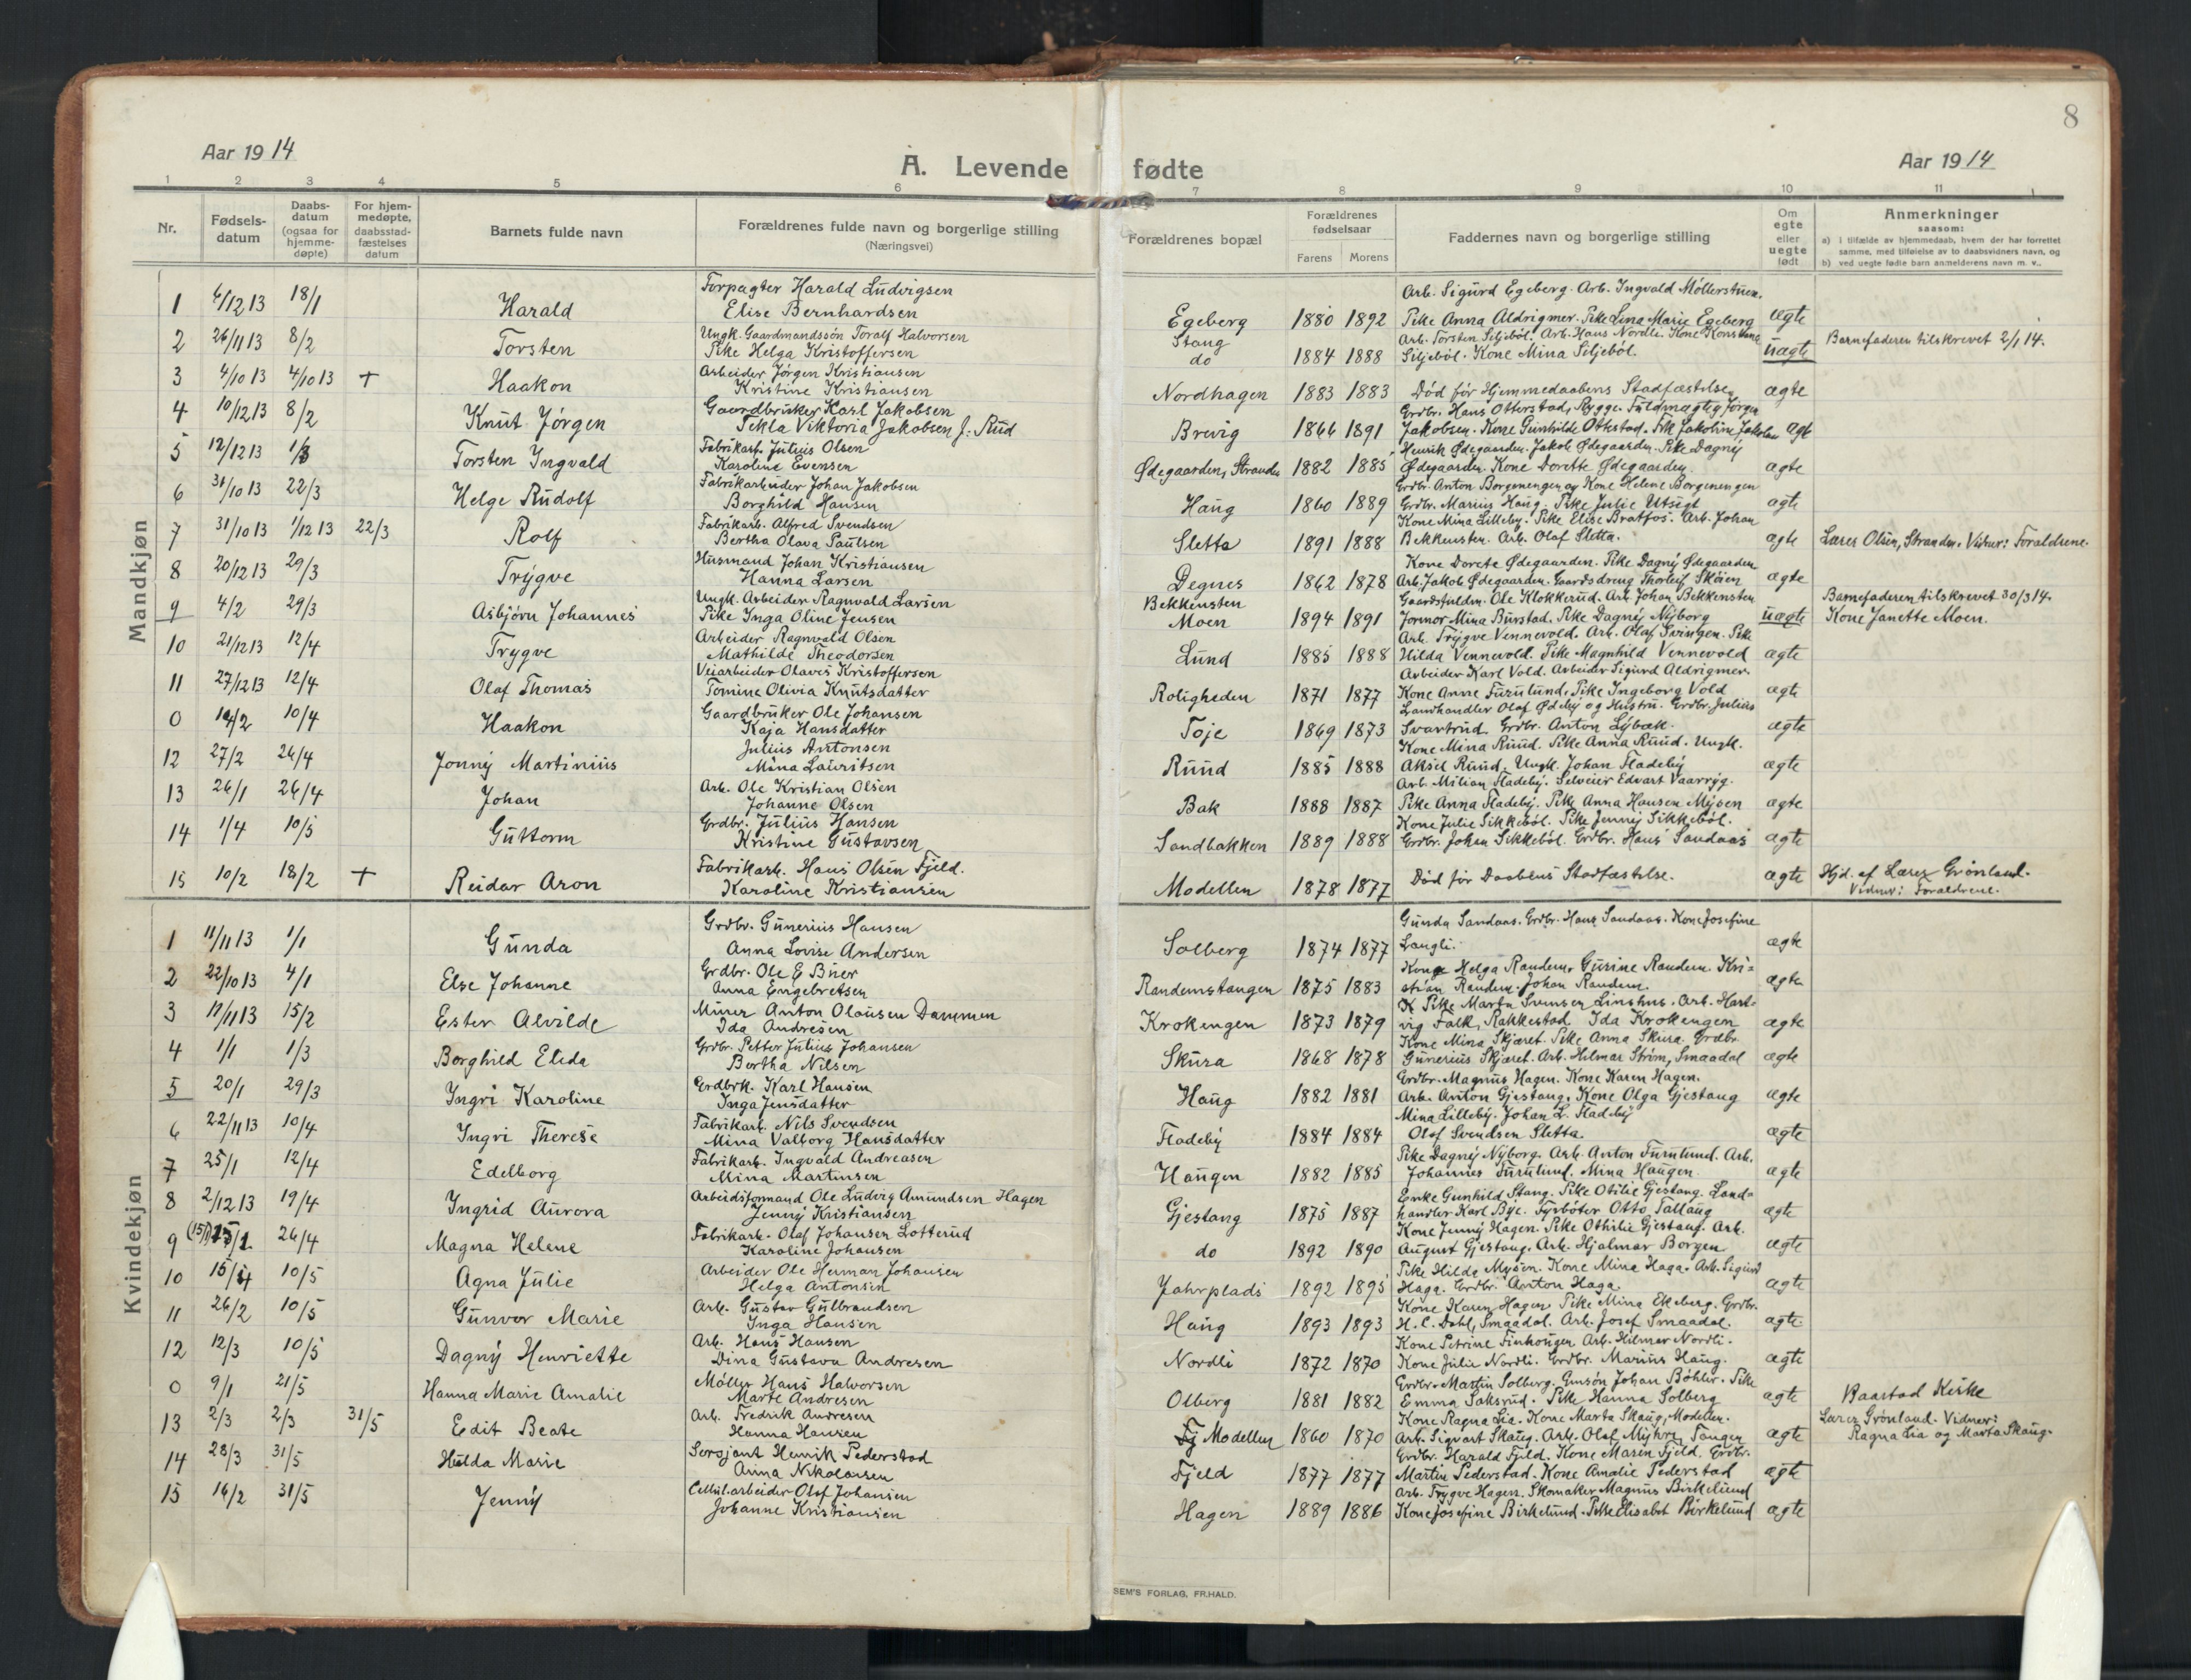 8
Aar 1914
A. Levende fødte
Aar 1914
1 2 3 4 5 6 7 8 9 10 11
Nr.
Fødsels-
datum
Daabs-
datum
(ogsaa for
hjemme-
døpte)
For hjem-
medøpte,
daabsstad-
fæstelses
datum
Barnets fulde navn
Forældrenes fulde navn og borgerlige stilling
(Næringsvei)
Forældrenes bopæl
Forældrenes
fødselsaar
Farens Morens
Faddernes navn og borgerlige stilling
Om
egte
eller
uegte
født
Anmerkninger
saasom:
a) i tilfælde av hjemmedaab, hvem der har forrettet
samme, med tilføielse av to daabsvidners navn, og
b) ved uegte fødte barn anmelderens navn m. v..
Mandkjøn
Forpagter Harald Ludvigsen Arb. Sigurd Egeberg. Arb. Ingvald Møllerstuen.
1 6/12 13 18/1 Harald Elise Bernhardsen Egeberg 1880 1892 Pike Anna Aldrigmer. Pike Lina Marie Egeberg ægte
Ungk. Gaardmandssøn Toralf Halvorsen Stang Arb. Torsten Siljebøl. Arb. Hans Nordli. Kone Konstanse
2 26/11 13 8/2 Torsten Pike Helga Kristoffersen do 1884 1888 Siljebøl. Kone Mina Siljebøl. uægte Barnefaderen tilskrevet 2/1 14.
Arbeider Jørgen Kristiansen
3 4/10 13 4/10 13 + Haakon Kristine Kristiansen Nordhagen 1883 1883 Død før Hjemmedaabens Stadfæstelse ægte
Gaardbruker Karl Jakobsen Grdbr. Hans Otterstad, Rygge. Fuldmægtig Jørgen
4 10/12 13 8/2 Knut Jørgen Tekla Viktoria Jakobsen f. Rud Brevig 1866 1891 Jakobsen. Kone Gunhilde Othestad. Frk Jakoline Jakobsen ægte
Fabrikarb. Julius Olsen Henrik Ødegaarden. Jakob Ødegaarden. Pike Dagny
5 12/12 13 1/3 Torsten Ingvald Karoline Evensen Ødegaarden, Stranden 1882 1885 Ødegaarden. Kone Dorette Ødegaarden. ægte
Fabrikarbeider Johan Jakobsen Grdbr. Anton Borgenengen og Kone Helene Borgenengen
6 31/10 13 22/3 Helge Rudolf Borghild Hansen Haug 1860 1889 Grdbr. Marius Haug. Pike Julie Utsigt ægte
Fabrikarb. Alfred Svendsen Kone Mina Lilleby. Pike Elise Bratfos. Arb. Johan
7 31/10 13 1/12 13 22/3 Rolf Bertha Olava Paulsen Sletta 1891 1888 Bekkensten. Arb. Olaf Sletta. ægte Lærer Olsen, Stranden. Vidner: Forældrene.
Husmand Johan Kristiansen Kone Dorete Ødegaarden. Pike Dagny Ødegaarden
8 20/12 13 29/3 Trygve Hanna Larsen Degnes 1862 1878 Arb. Jakob Ødegaarden. Gaardsdreng Thorleif Skoien ægte
Ungk. Arbeider Ragnvald Larsen Bekkensten Gaardsfuldm. Ole Klokkerud. Arb. Johan Bekkensten Barnefaderen tilskrevet 30/3 14.
9 4/2 29/3 Asbjørn Johannes Pike Inga Oline Jensen Moen 1894 1891 Jormor Mina Burstad. Pike Dagny Nyborg uægte Kone Janette Moen.
Arbeider Ragnvald Olsen Arb. Trygve Vennevold. Arb. Olaf Svingen. Pike
10 21/12 13 12/4 Trygve Mathilde Theodorsen Lund 1885 1888 Hilda Vennevold. Pike Magnhild Vennevold ægte
Veiarbeider Olaves Kristoffersen Arbeider Karl Vold. Arbeider Sigurd Aldrigmer.
11 27/12 13 12/4 Olaf Thomas Tomine Olivia Knutsdatter Roligheden 1871 1877 Kone Anne Furulund, Pike Ingeborg Vold ægte
Gaardbruker Ole Johansen Landhandler Olaf Ødeby og Hustru. Grdbr. Julius
0 14/2 10/4 Haakon Kaja Hansdatter Toje 1869 1873 Svartrud. Grdbr. Anton Lybæk. ægte
Julius Antonsen Kone Mina Ruud. Pike Anna Ruud. Ungk.
12 27/2 26/4 Jonny Martinius Mina Lauritsen Ruud 1885 1888 Aksel Ruud. Ungk. Johan Fladeby ægte
Arb. Ole Kristian Olsen Arb. Milian Fladeby. Selveier Edvart Vaarryg.
13 26/1 26/4 Johan Johanne Olsen Bak 1888 1887 Pike Anna Fladeby. Pike Anna Hansen Mysen ægte
Grdbr. Julius Hansen Kone Julie Sikkebøl. Pike Jenny Sikkebøl.
14 1/4 10/5 Guttorm Kristine Gustavsen Sandbakken 1889 1888 Grdbr. Johan Sikkebøl. Grdbr. Hans Sandaas ægte
Fabrikarb. Hans Olsen Fjeld. Hjd. af Lærer Grønland.
15 10/2 18/2 + Reidar Aron Karoline Kristiansen Modellen 1878 1877 Død før Daabens Stadfæstelse. ægte Vidner: Forældrene.
Kvindekjøn
Grdbr. Gunerius Hansen Gunda Sandaas. Grdbr. Hans Sandaas. Kone Josefine
1 11/11 13 1/1 Gunda Anna Lovise Andersen Solberg 1874 1877 Langli. ægte
Grdbr. Ole E Buer Kone Helga Randem, Gurine Randem. Kri=
2 22/10 13 4/1 Else Johanne Anna Engebretsen Randemstangen 1875 1883 stian Randem. Johan Randem. ægte
Murer Anton Olausen Dammen Pike Marta Svensen Linshus. Arb. Hart=
3 11/11 13 15/2 Ester Alvilde Ida Andresen Krokengen 1873 1879 vig Falk, Rakkestad Ida Krokengen ægte
Grdbr. Petter Julius Johansen Kone Mina Skjæret. Pike Anna Skura. Grdbr.
4 1/1 1/3 Borghild Elida Bertha Nilsen Skura 1868 1878 Gunerius Skjæret. Arb. Hilmar Strøm, Smaadal ægte
Grdbrk. Karl Hansen Grdbr. Magnus Hagen. Kone Karen Hagen.
5 20/1 29/3 Ingri Karoline Inga Jensdatter Haug 1882 1881 Arb. Anton Gjestang. Kone Olga Gjestang ægte
Fabrikarb. Nils Svendsen Mina Lilleby. Johan L. Fladeby
6 22/11 13 10/4 Ingri Therese Mina Valborg Hansdatter Fladeby 1884 1884 Olaf Svendsen Sletta. ægte
Fabrikarb. Ingvald Andreasen Pike Dagny Nyborg. Arb. Anton Furulund. Arb.
7 25/1 12/4 Edelborg Mina Martinsen Haugen 1882 1885 Johannes Furulund. Mina Haugen. ægte
Arbeidsformand Ole Ludvig Amundsen Hagen Enke Gunhild Stang. Pike Otilie Gjestang. Land=
8 2/12 13 19/4 Ingrid Aurora Jenny Kristiansen Gjestang 1875 1887 handler Karl Bye. Fyrbøter Otto Tallaug ægte
Fabrikarb. Olaf Johansen Lotterud Kone Jenny Hagen. Pike Othilie Gjestang. Arb.
9 26/4 Magna Helene Karoline Johansen do 1892 1890 August Gjestang. Arb. Hjalmar Borgen ægte
Arbeider Ole Herman Johansen Pike Hilda Mysen. Kone Mina Haga. Arb. Sigurd
10 15/4 10/5 Agna Julie Helga Antonsen Jahrplads 1892 1895 Haga. Grdbr. Anton Haga. ægte
Arb. Gustav Gulbrandsen Kone Karen Hagen. Pike Mina Ekeberg. Grdbr.
11 26/2 10/5 Gunvor Marie Inga Hansen Haug 1893 1893 H. C. Dahl, Smaadal. Arb. Josef Smaadal. ægte
Arb. Hans Hansen Kone Petrine Finhougen Arb. Hilmar Nordli.
12 12/3 10/5 Dagny Henriette Dina Gustava Andresen Nordli 1872 1870 Kone Julie Nordli. Grdbr. Marius Haug. ægte
Møller Hans Halvorsen Grdbr. Martin Solberg. Gmsøn Johan Bøhler. Pike
0 9/1 21/5 Hanna Marie Amalie Marte Andresen Olberg 1881 1882 Emma Saksrud. Pike Hanna Solberg ægte Baastad Kirke
Arb. Fredrik Andresen Kone Ragna Lia. Kone Marta Skaug, Modellen. Lærer Grønland. Vidner:
13 2/3 2/3 31/5 Edit Beate Hanna Hansen Modellen 1860 1870 Arb. Sigvart Skaug. Arb. Olaf Myhre, Tangen ægte Ragna Lia og Marta Skaug.
Sersjant Henrik Pederstad Grdbr. Harald Fjeld. Kone Maren Fjeld. Grdbr.
14 28/3 31/5 Hulda Marie Anna Nikolausen Fjeld 1877 1877 Martin Pederstad. Kone Amalie Pederstad ægte
Cellul.arbeider Olaf Johansen Arb. Trygve Hagen. Skomaker Magnus Birkelund
15 14/2 31/5 Jenny Johanne Kristiansen Hagen 1889 1886 Kone Josefine Birkelund. Pike Elisabet Birkelund ægte
SEM'S FORLAG, FR.HALD.